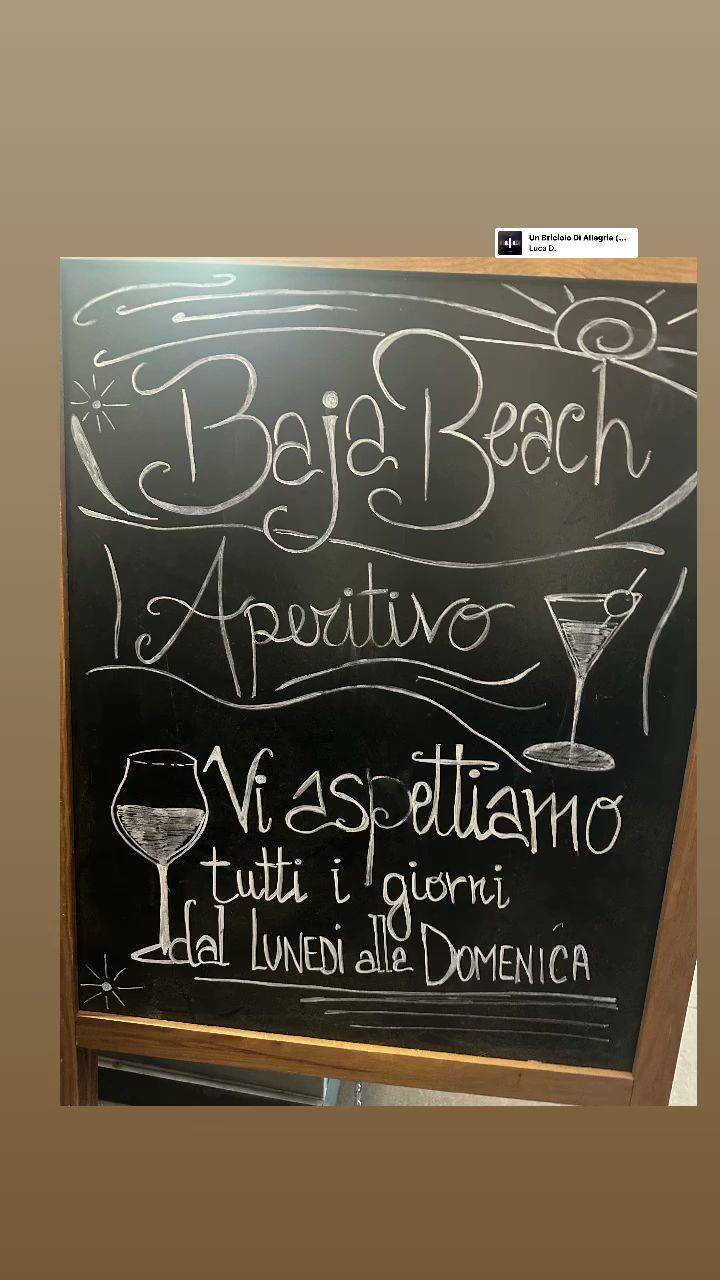 Un Briciolo Di Allegria (...
Luca D.
Baja Beach
Aperitivo
Vi aspettiamo
tutti i giorni
dal LUNEDì alla DOMENICA